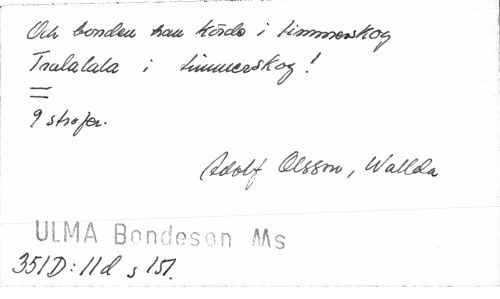 Och bonden han körde i timmerskog
Tralalala i timmerskog!
=
9 strofer.
Adolf Olsson, Wallda
ULMA Bondeson Ms
351D:11d s 151.